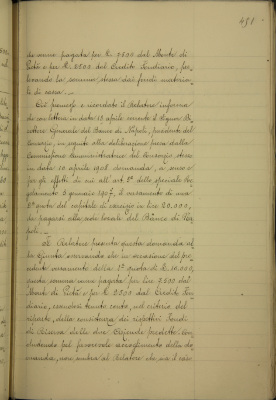 451
de venne pagata per L. 7500 dal Monte di
Pietà e per L. 2500 dal Credito Fondiario, pre-
levando la somma stessa dai fondi materia-
li di cassa.
Ciò premesso e ricordato il Relatore informa
che con lettera in data 15 aprile corrente il Signor Di-
rettore Generale del Banco di Napoli, presidente del
Consorzio, in seguito alla deliberazione presa dalla
Commissione Amministratrice del Consorzio stesso
in data 10 aprile 1908 domanda, a senso e
per gli effetti di cui all'art. 1º dello speciale Re-
golamento 6 gennaio 1907, il versamento di una
2ª quota del capitale di esercizio in lire 20,000,
da pagarsi alla sede locale del Banco di Na-
poli.
Il Relatore presenta questa domanda al-
la Giunta avvertendo che in occasione del pre-
cedente versamento della 1ª quota di L. 10,000,
questa somma venne pagata per lire 7500 dal
Monte di Pietà e per L. 2500 dal Credito Fon-
diario, tenutosi conto, nel criterio del
riparto, della consistenza dei rispettivi Fondi
di Riserva delle due Aziende predette. Con-
cludendo pel favorevole accoglimento della do-
manda, non sembra al Relatore che sia il caso